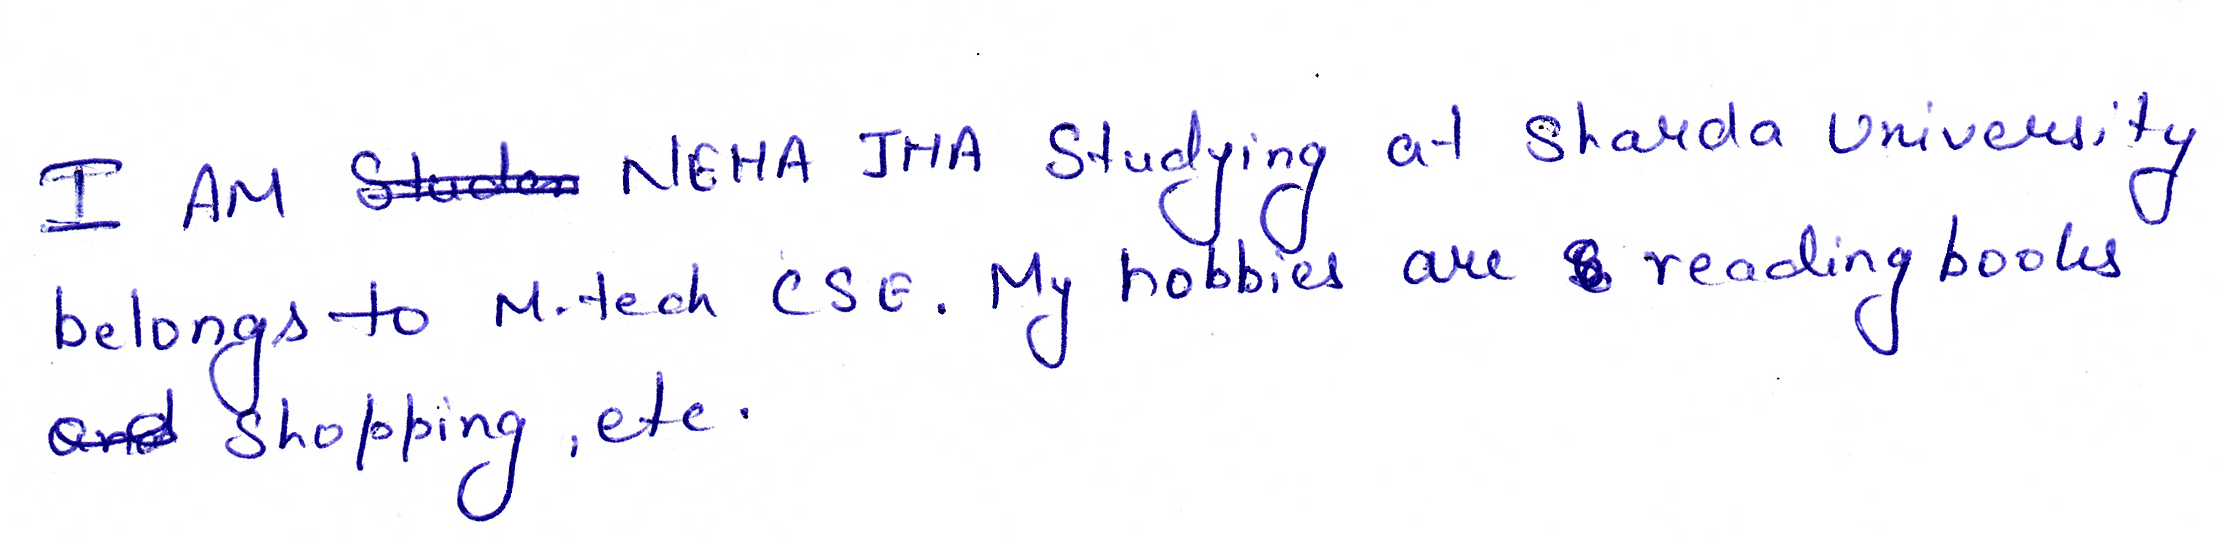 I AM NEHA JHA Studying at Sharda University
belongs to M.tech CSE. My hobbies are reading books
and Shopping, etc.